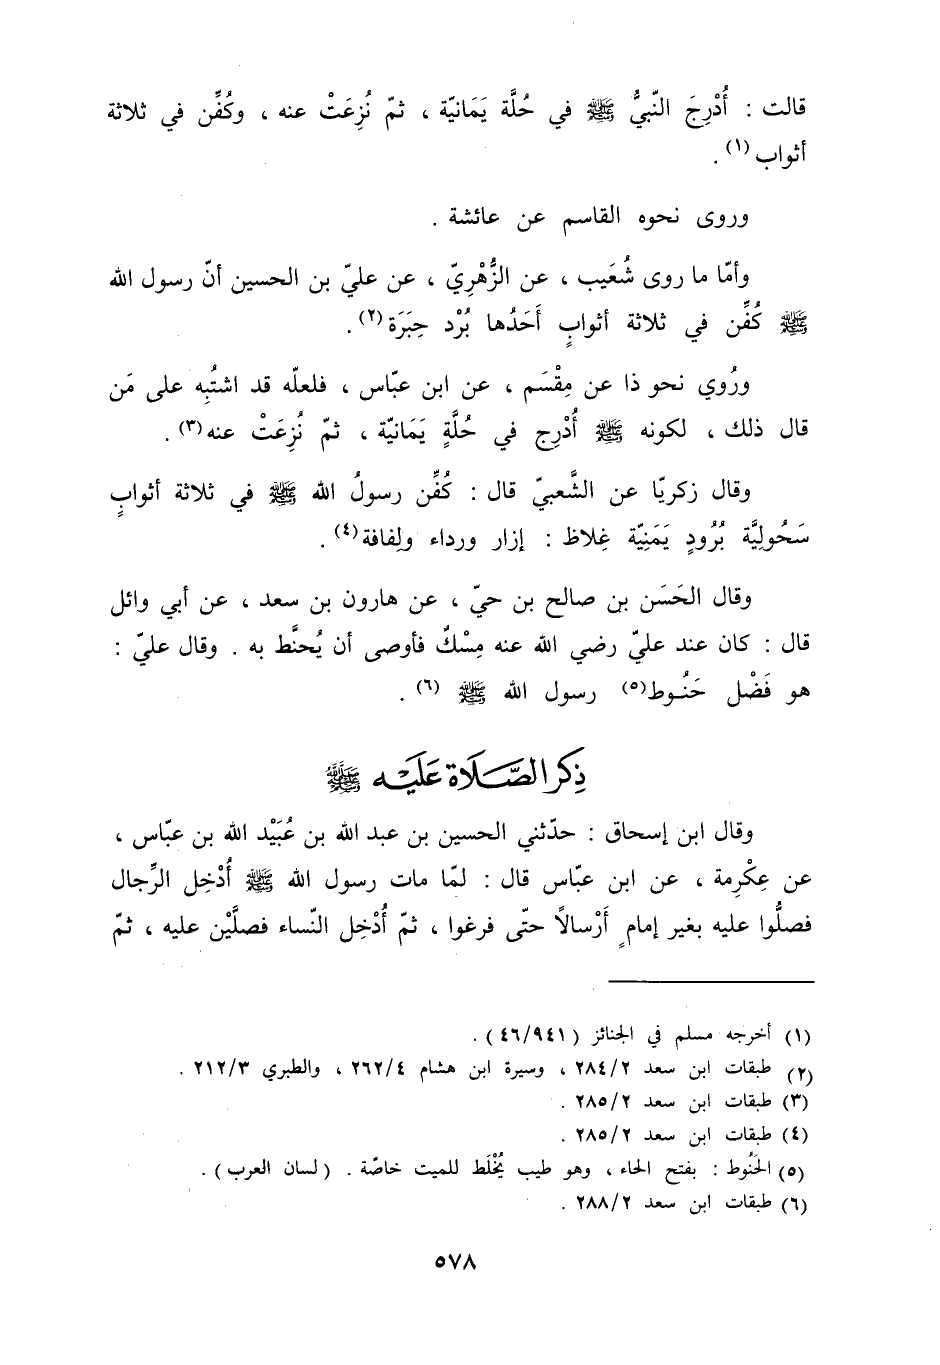 قالت : أُدْرِجَ النّبيُّ ﷺ في حُلَّة يَمَانيّة ، ثمّ نُزِعَتْ عنه ، وكُفِّن في ثلاثة
أثواب (١) .
وروى نحوه القاسم عن عائشة .
وأمّا ما روى شُعَيب ، عن الزُّهْرِيّ ، عن عليّ بن الحسين أنّ رسول الله
ﷺ كُفِّن في ثلاثة أثوابٍ أَحَدُها بُرْد حِبَرَة (٢) .
ورُوي نحو ذا عن مِقْسَم ، عن ابن عبّاس ، فلعلّه قد اشتُبِه على مَن
قال ذلك ، لكونه ﷺ أُدْرِج في حُلَّةٍ يَمَانيّة ، ثمّ نُزِعَتْ عنه (٣) .
وقال زكريّا عن الشَّعبيّ قال : كُفِّن رسولُ الله ﷺ في ثلاثة أثوابٍ
سَحُولِيَّة بُرُودٍ يَمَنِيّة غِلاظ : إزار ورداء ولِفافة (٤) .
وقال الحَسَن بن صالح بن حيّ ، عن هارون بن سعد ، عن أبي وائل
قال : كان عند عليّ رضي الله عنه مِسْكٌ فأوصى أن يُحنَّط به . وقال عليّ :
هو فَضْل حَنُـوط (٥) رسول الله ﷺ (٦) .
ذِكر الصَّلَاة عَلَيْه ﷺ
وقال ابن إسحاق : حدّثني الحسين بن عبد الله بن عُبَيْد الله بن عبّاس ،
عن عِكْرِمة ، عن ابن عبّاس قال : لمّا مات رسول الله ﷺ أُدْخِل الرِّجال
فصلُّوا عليه بغير إمامٍ أَرْسالاً حتّى فرغوا ، ثمّ أُدْخِل النّساء فصلَّيْن عليه ، ثمّ
(١) أخرجه مسلم في الجنائز (٤٦/٩٤١) .
(٢) طبقات ابن سعد ٢/٢٨٤ ، وسيرة ابن هشام ٤/٢٦٢ ، والطبري ٣/٢١٢ .
(٣) طبقات ابن سعد ٢/٢٨٥ .
(٤) طبقات ابن سعد ٢/٢٨٥ .
(٥) الحَنُوط : بفتح الحاء ، وهو طيب يُخْلَط للميت خاصّة . (لسان العرب) .
(٦) طبقات ابن سعد ٢/٢٨٨ .
٥٧٨